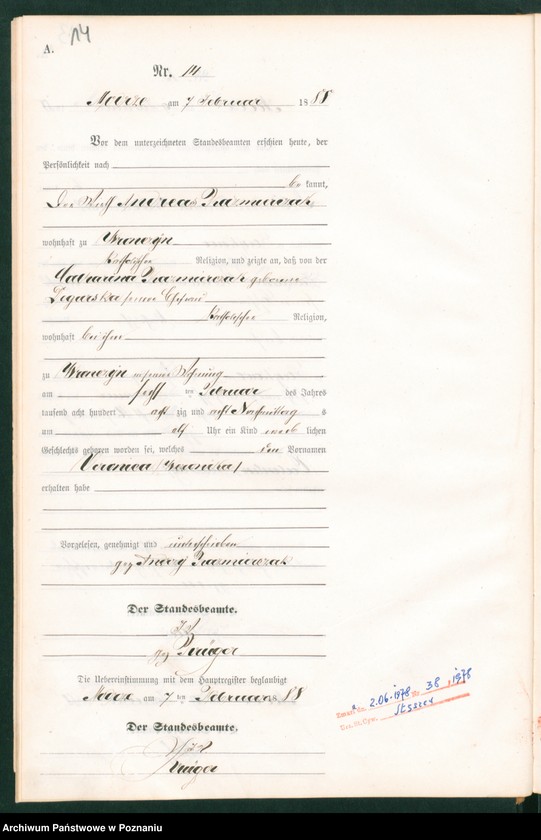 14
A.
Nr. 14
am 7 Februar 1888
Vor dem unterzeichneten Standesbeamten erschien heute, der
Persönlichkeit nach
be kannt,
Der Andreas Kazmierczak
wohnhaft zu
katholischer Religion, und zeigte an, daß von der
Catharina Kazmierczak geborene
seine Ehefrau
katholischer Religion,
wohnhaft bei ihm
zu in seiner Wohnung
am sechs ten Februar des Jahres
tausend acht hundert acht zig und acht Vormittag s
um elf Uhr ein Kind weib lichen
Geschlechts geboren worden sei, welches den Vornamen
Veronica (Weronika)
erhalten habe
Vorgelesen, genehmigt und unterschrieben
gez Kazmierczak
Der Standesbeamte.
gez Krüger
Die Uebereinstimmung mit dem Hauptregister beglaubigt
am 7 ten Februar 1888
Der Standesbeamte.
Krüger
2.06.1978 Nr. 38, 1978
Archiwum Państwowe w Poznaniu